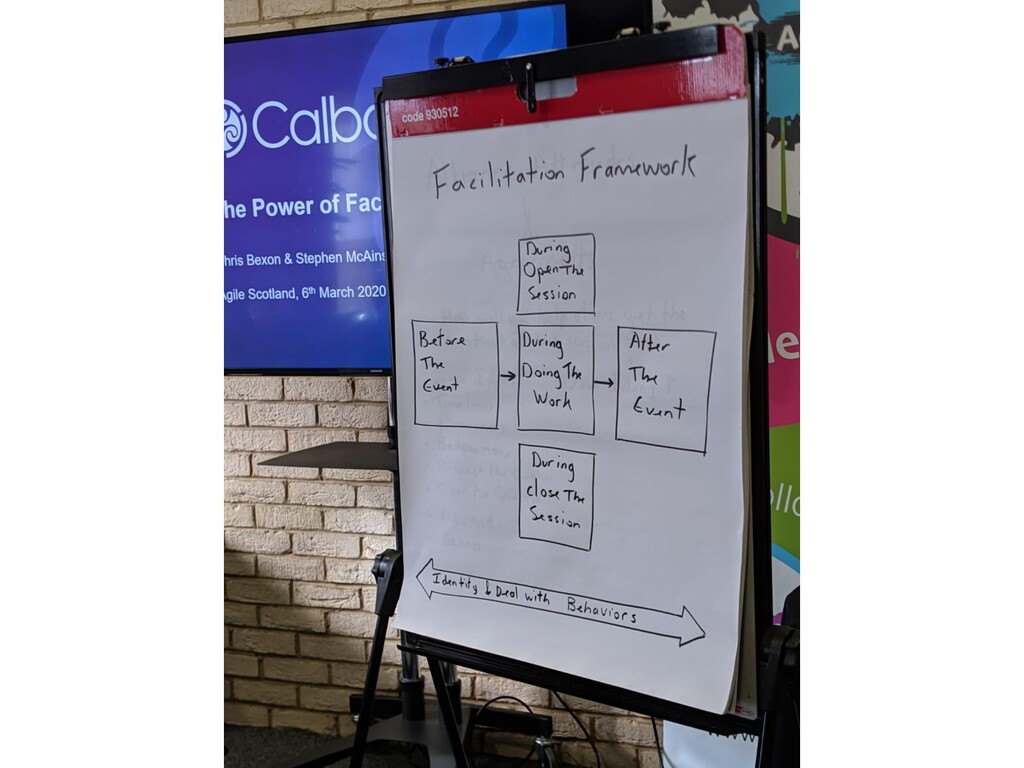 Calbo
he Power of Fac
hris Bexon & Stephen McAins
gile Scotland, 6th March 2020
code 930512
Facilitation Framework
During
Open The
Session
Before
The
Event
During
Doing The
Work
After
The
Event
During
close The
Session
Identify & Deal with Behaviors